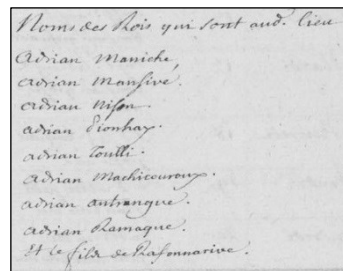 Noms des Rois qui sont aud. lieu
Adrian Maniche,
adrian Mansive.
adrian Nison.
adrian Dionhay.
adrian Toulli.
adrian Machicouroux.
adrian antrangue.
adrian Ramaque.
Et le fils de Rasonnarive.